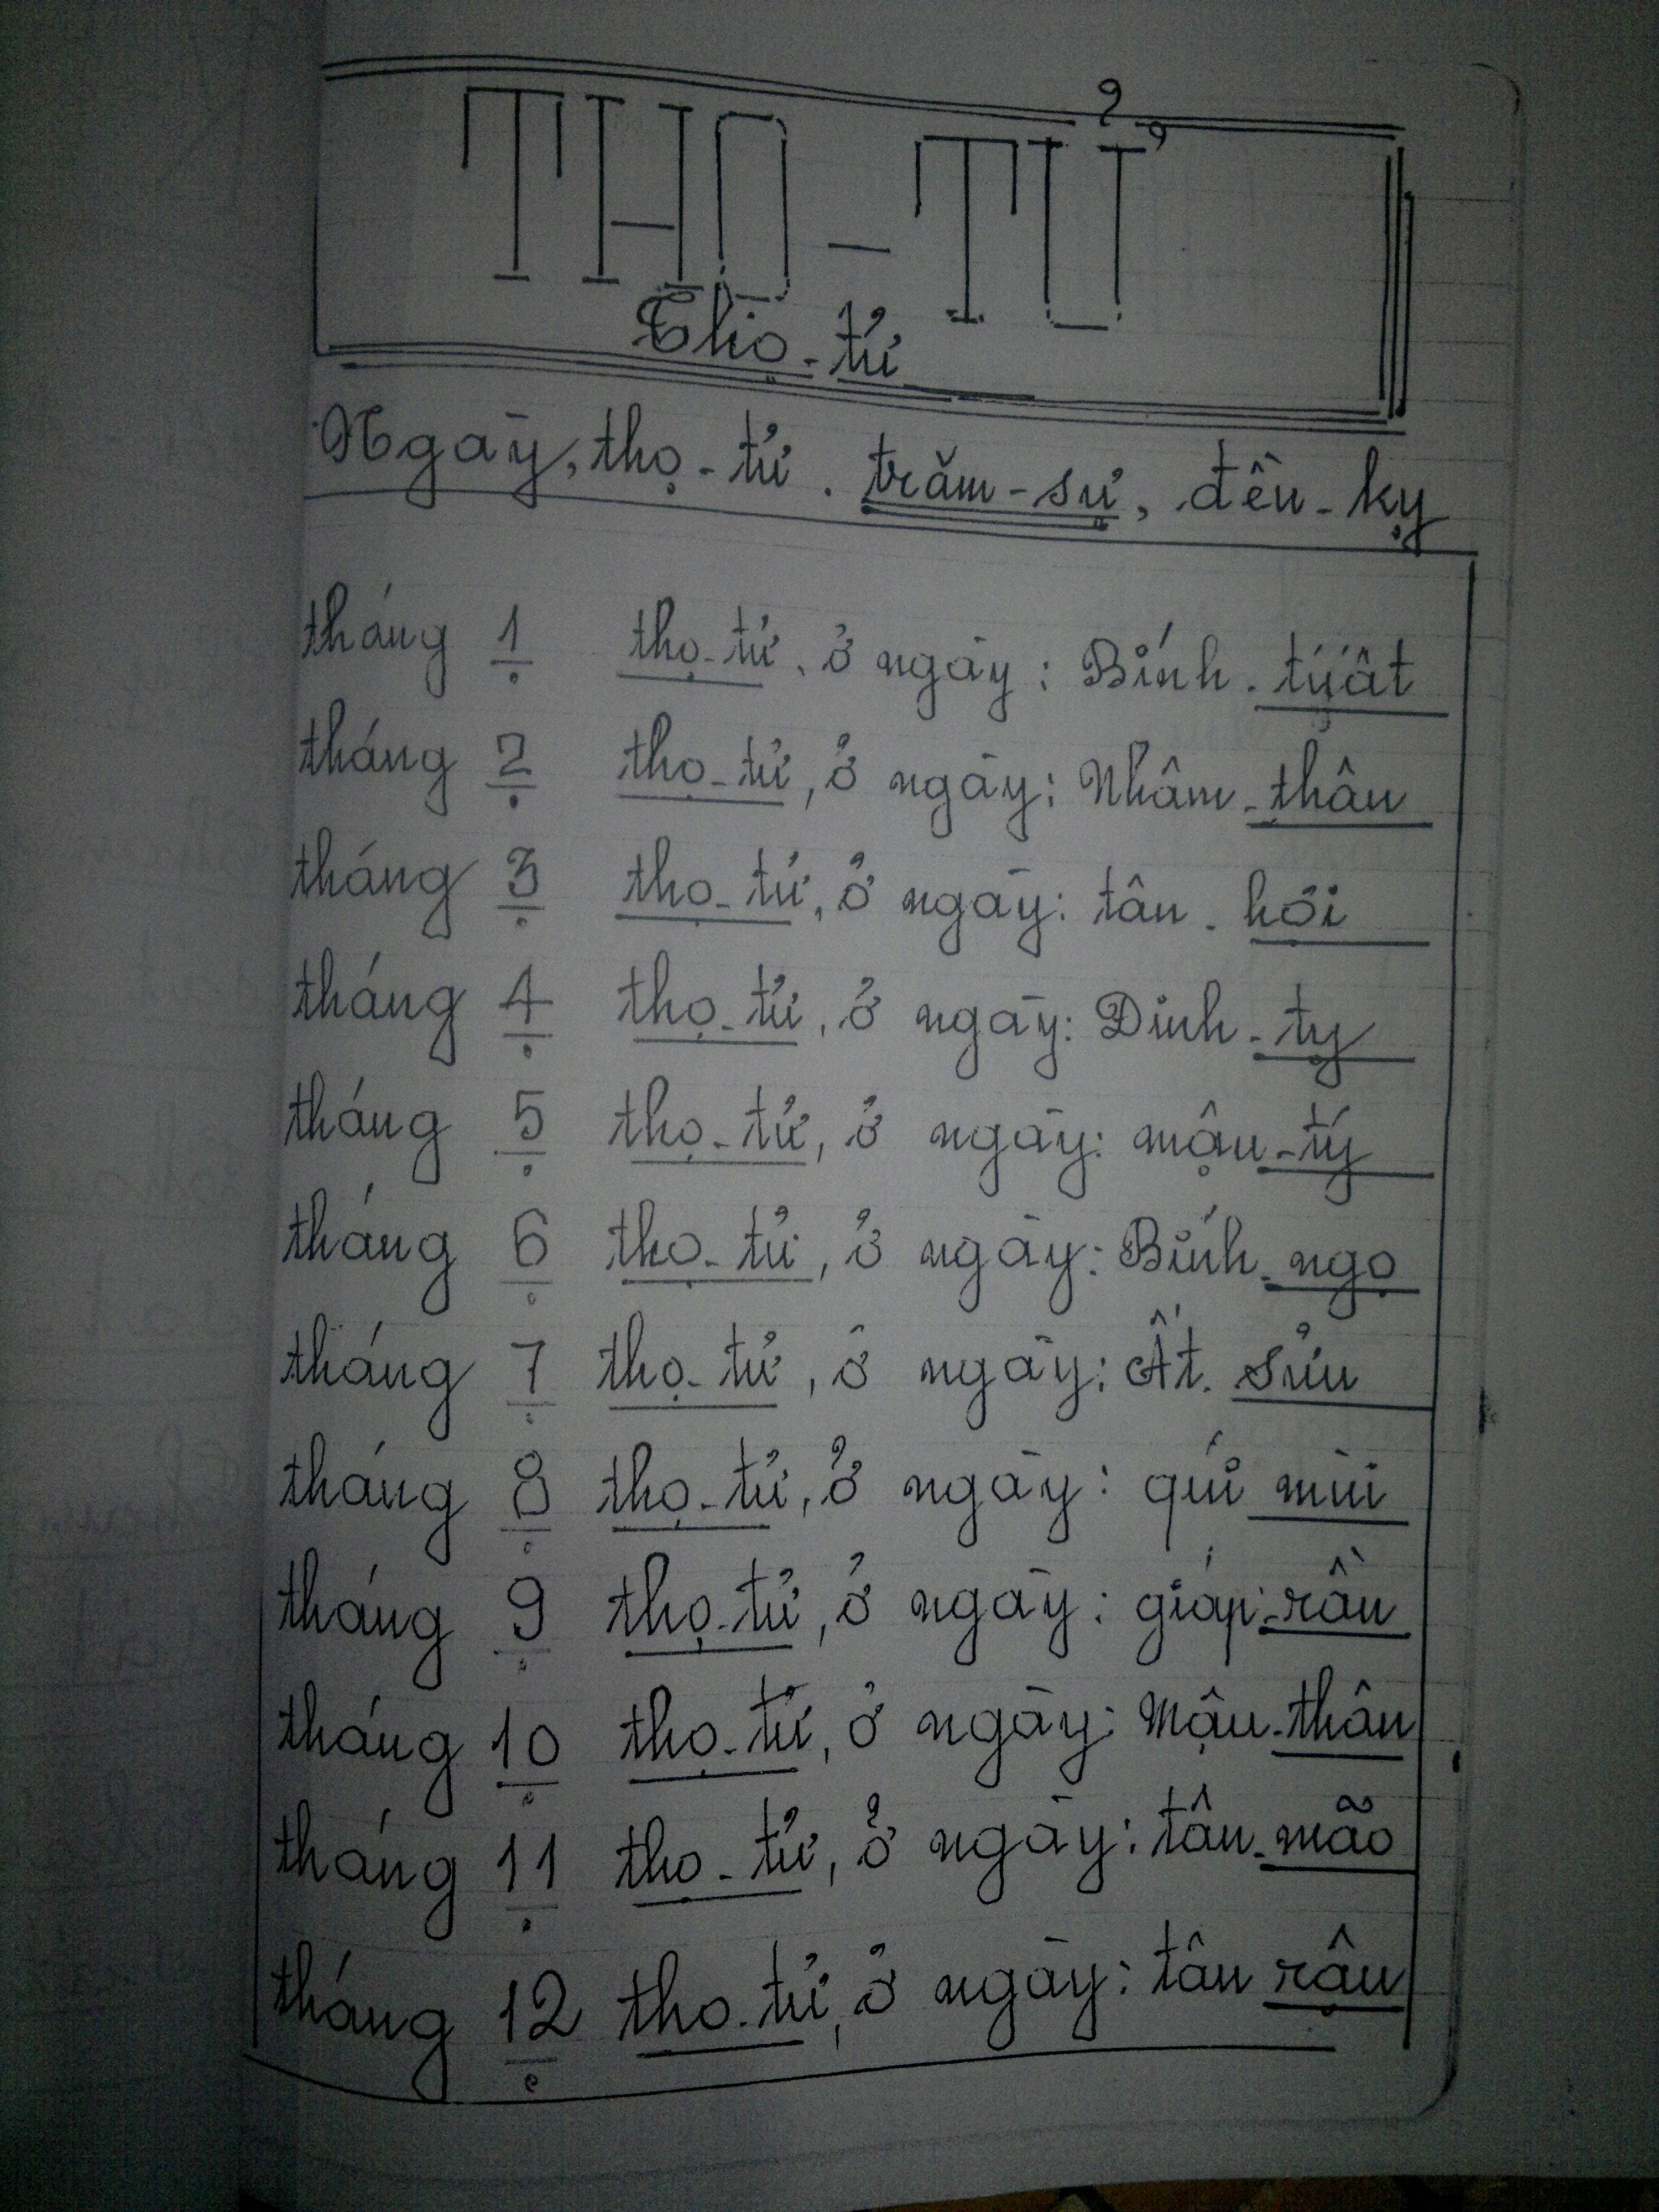 THỌ - TỬ
Thọ - tử
Ngày, thọ - tử . trăm - sự, đều - kỵ
tháng 1 thọ - tử, ở ngày : Bính . tụất
tháng 2 thọ - tử, ở ngày : Nhâm - thân
tháng 3 thọ - tử, ở ngày : tân . hợi
tháng 4 thọ - tử, ở ngày : Đinh - tỵ
tháng 5 thọ - tử, ở ngày : mậu - tý
tháng 6 thọ - tử, ở ngày : Bính - ngọ
tháng 7 thọ - tử, ở ngày : Ất . sửu
tháng 8 thọ - tử, ở ngày : quí mùi
tháng 9 thọ - tử, ở ngày : giáp - rần
tháng 10 thọ - tử, ở ngày : Mậu - thân
tháng 11 thọ - tử, ở ngày : tân - mão
tháng 12 thọ - tử, ở ngày : tân rậu